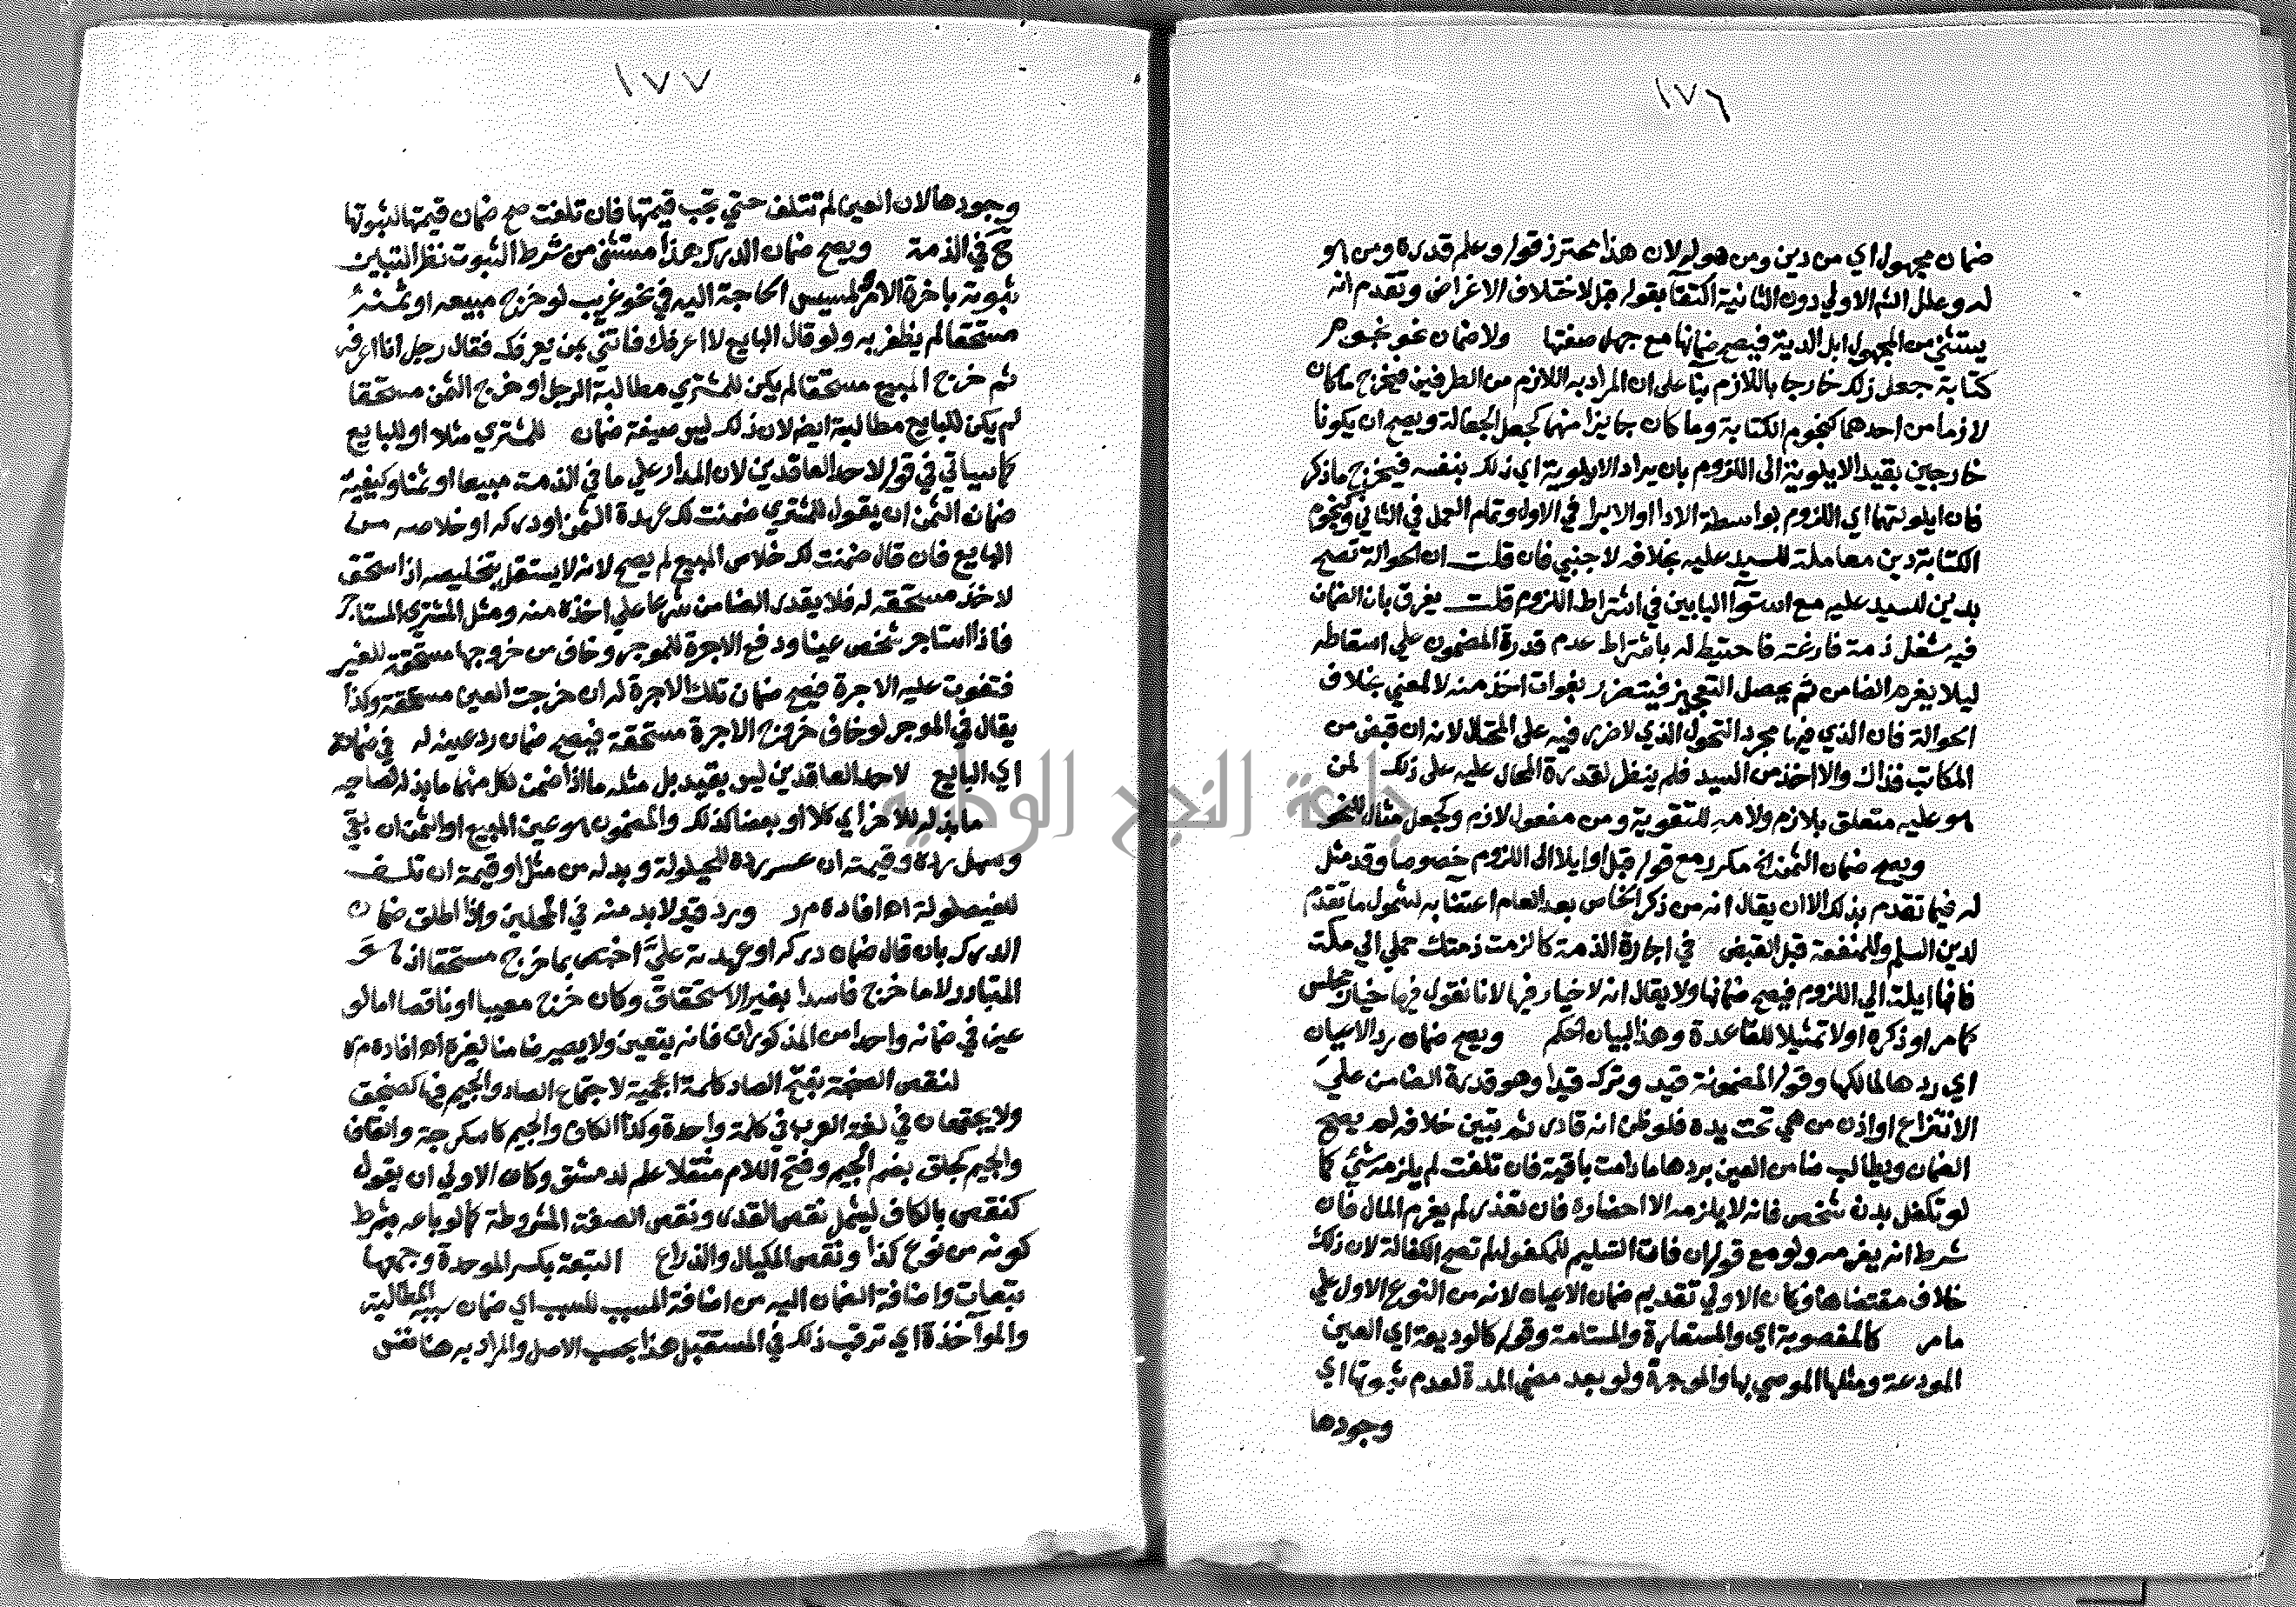 ١٧٦
ضمان مجهول اي من دين ومن هو له لان هذا محترز قوله وعلم قدره ومن هو
له وعلل الاولي دون الثانية اكتفاء بقوله قبل لاختلاف الاغراض وتقدم انه
يستثني من المجهول ابل الدية فيصح ضمانها مع جهل صفتها ولا ضمان نحو نجوم
كتابة جعل ذلك خارجا باللازم بناء على ان المراد به اللازم من الطرفين فيخرج ما كان
لازما من احدهما كنجوم الكتابة وما كان جايزا منهما كجعل الجعالة ويصح ان يكونا
خارجين بقيد الايلوية الى اللزوم بان يراد الايلوية اي ذلك بنفسه فيخرج ما ذكر
فان ايلولتهما اي اللزوم بواسطة الادا او الابرا في الاول وتمام العمل في الثاني وكنجوم
الكتابة دين معاملة للسيد عليه بخلافه لاجنبي فان قلت ان الحوالة تصح
بدين للسيد عليه مع استواء البابين في اشتراط اللزوم قلت يفرق بان الضمان
فيه شغل ذمة فارغة فاحتيط له باشتراط عدم قدرة المضمون علي اسقاطه
ليلا يغرم الضامن ثم يحصل التعجيز فيتضرر بفوات اخذ منه لا لمعني بخلاف
الحوالة فان الذي فيها مجرد التحول الذي لا ضرر فيه على المحتال لانه ان قبض من
المكاتب فذاك والا اخذ من السيد فلم ينظر لقدرة المحال عليه على ذلك لمن
هو عليه متعلق بلازم ولامه للتقوية ومن مفعول لازم وكجعل مثال للنحو
ويصح ضمان الثمن الخ مكرر مع قوله قبل او ايلا الى اللزوم خصوصا وقد مثل
له فيما تقدم بذلك الا ان يقال انه من ذكر الخاص بعد العام اعتنا به لشمول ما تقدم
لدين السلم وللمنفعة قبل القبض في اجارة الذمة كالزمت ذمتك حملي الي مكة
فانها ايلة الي اللزوم فيصح ضمانها ولا يقال انه لا خيار فيها لانا نقول فيها خيار مجلس
كما مر او ذكره اولا تمثيلا للقاعدة وهذا لبيان الحكم ويصح ضمان رد الاعيان
اي ردها لمالكها وقوله المضمونة قيد وترك قيدا وهو قدرة الضامن علي
الانتزاع او اذن من هي تحت يده فلو ظن انه قادر ثم تبين خلافه لم يصح
الضمان ويطالب ضامن العين بردها ما دامت باقية فان تلفت لم يلزمه شئ كما
لو تكفل بدن شخص فانه لا يلزمه الا احضاره فان تعذر لم يغرم المال فان
شرط انه يغرمه ولو مع قوله ان فات التسليم للمكفول لم تصح الكفالة لان ذلك
خلاف مقتضاها وكان الاولي تقديم ضمان الاعيان لانه من النوع الاول علي
ما مر كالمغصوبة اي والمستعارة والمستامة وقوله كالوديعة اي العين
المودعة ومثلها الموصي بها والموجرة ولو بعد مضي المدة لعدم ثبوتها اي
وجودها
١٧٧
وجودها لان العين لم تتلف حتي تجب قيمتها فان تلفت صح ضمان قيمتها لثبوتها
ح في الذمة ويصح ضمان الدرك هذا مستثني من شرط الثبوت نظرا لتبين
ثبوته باخرة الامر لمسيس الحاجة اليه في نحو غريب لو خرج مبيعه او ثمنه
مستحقا لم يظفر به ولو قال البايع لا اعرفك فاتني بمن يعرفك فقال رجل انا اعرفه
ثم خرج المبيع مستحقا لم يكن للمشتري مطالبة الرجل او خرج الثمن مستحقا
لم يكن للبايع مطالبة ايضا لان ذلك ليس صيغة ضمان للمشتري مثلا او للبايع
كما سياتي في قوله لاحد العاقدين لان المدار علي ما في الذمة مبيعا او ثمنا وكيفية
ضمان الثمن ان يقول للمشتري ضمنت لك عهدة الثمن او دركه او خلاصه من
البايع فان قال ضمنت لك خلاص المبيع لم يصح لانه لا يستقل بتخليصه اذا استحق
لاخذ مستحقه له فلا يقدر الضامن شرعا علي اخذه منه ومثل المشتري المستاجر
فاذا استاجر شخص عينا ودفع الاجرة للموجر وخاف من خروجها مستحقة للغير
فتفوت عليه الاجرة فيصح ضمان تلك الاجرة له ان خرجت العين مستحقة وكذا
يقال في الموجر لو خاف خروج الاجرة مستحقة فيصح ضمان رد عينه له في ضمانة
اي البايع لاحد العاقدين ليس بقيد بل مثله ما اذا ضمن لكل منهما ما بذله لصاحبه
ما بذله للاخر اي كلا او بعضا كذلك والمضمون هو عين المبيع او الثمن ان بقي
وسهل رده وقيمته ان عسر رده للحيلولة وبدله من مثل او قيمة ان تلف
للفيصولة اه افاده م ر ورد قيد لا بد منه في المحلين واذا اطلق ضمان
الدرك بان قال ضمان دركه او عهدته علي اختص بما خرج مستحقا اذ هو
المتبادر لا ما خرج فاسدا بغير الاستحقاق وكان خرج معيبا او ناقصا اما لو
عين في ضمانه واحدا من المذكورات فانه يتعين ولا يصير ضامنا لغيره اه افاده م ر
لنقص الصنجة بفتح الصاد كلمة اعجمية لاجتماع الصاد والجيم فيها كصنجق
ولا يجتمعان في لغة العرب في كلمة واحدة وكذا الكاف والجيم كاسكرجة والقاف
والجيم كجلق بضم الجيم وفتح اللام مثقلا علم لدمشق وكان الاولي ان يقول
كنقص بالكاف ليشمل نقص القدر ونقص الصفة المشروطة كما لو باعه بشرط
كونه من نوع كذا ونقص المكيال والذراع التبعة بكسر الموحدة وجمعها
تبعات واضافة الضمان اليه من اضافة المسبب للسبب اي ضمان سببه المطالبة
والمواخذة اي ترقب ذلك في المستقبل هذا بحسب الاصل والمراد به هنا نفس
جامعة النجاح الوطنية